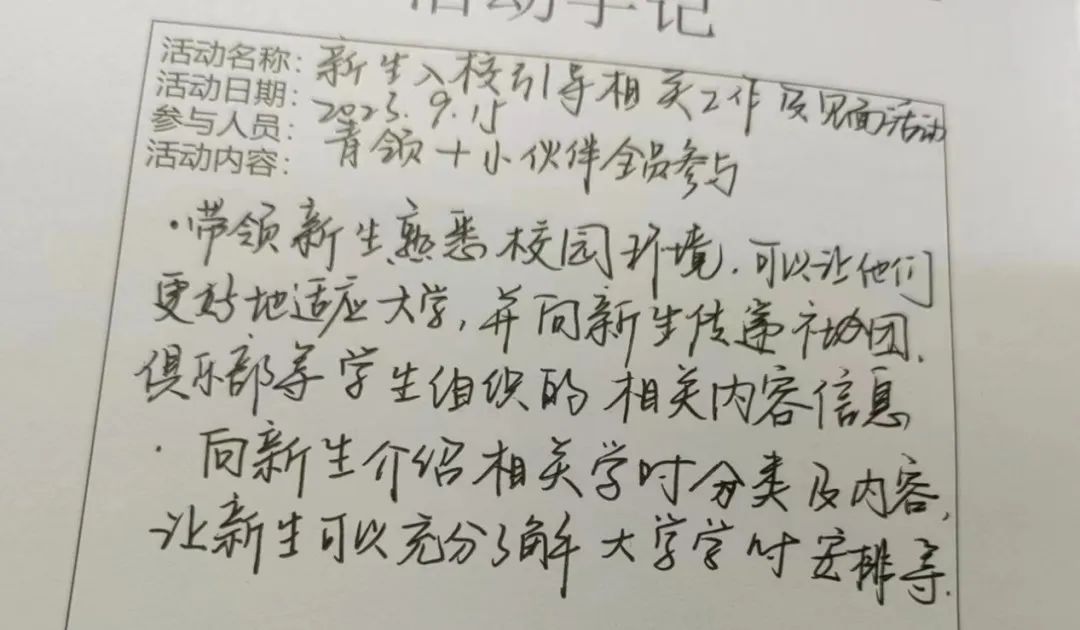 活动手记
活动名称：新生入校引导相关工作及见面活动
活动日期：2023.9.15
参与人员：青领+小伙伴全员参与
活动内容：
·带领新生熟悉校园环境，可以让他们
更好地适应大学，并向新生传递社团、
俱乐部等学生组织的相关内容信息
·向新生介绍相关学时分类及内容，
让新生可以充分了解大学学时安排等.